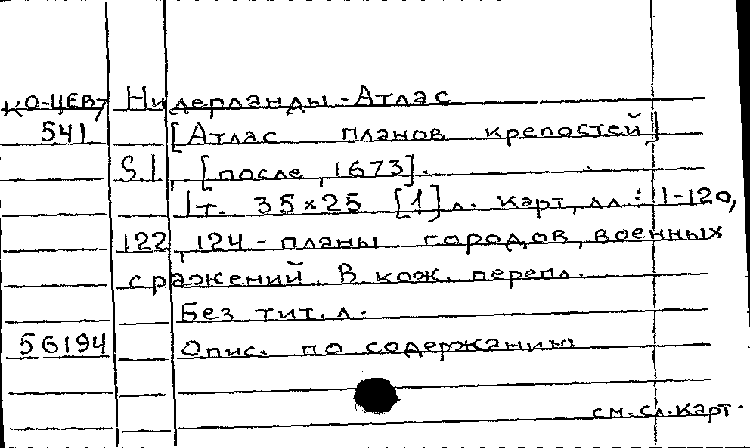 КО-ЦЕВ7 Нидерланды-Атлас
541 [Атлас планов крепостей]
S.l., [после 1673].
1т. 35×25 [1] л. карт, лл: 1-120,
122, 124 - планы городов, военных
сражений. В кож. перепл.
Без тит. л.
56194 Опис. по содержанию
см. сл. карт.